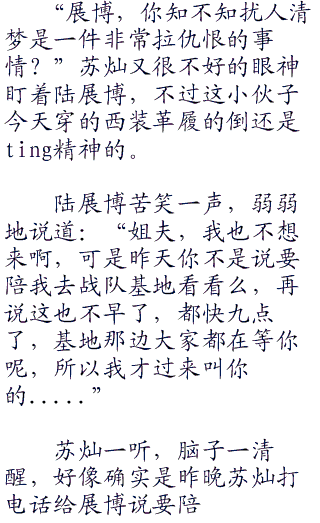 “展博，你知不知扰人清
梦是一件非常拉仇恨的事
情？”苏灿又很不好的眼神
盯着陆展博，不过这小伙子
今天穿的西装革履的倒还是
ting精神的。
陆展博苦笑一声，弱弱
地说道：“姐夫，我也不想
来啊，可是昨天你不是说要
陪我去战队基地看看么，再
说这也不早了，都快九点
了，基地那边大家都在等你
呢，所以我才过来叫你
的.....”
苏灿一听，脑子一清
醒，好像确实是昨晚苏灿打
电话给展博说要陪